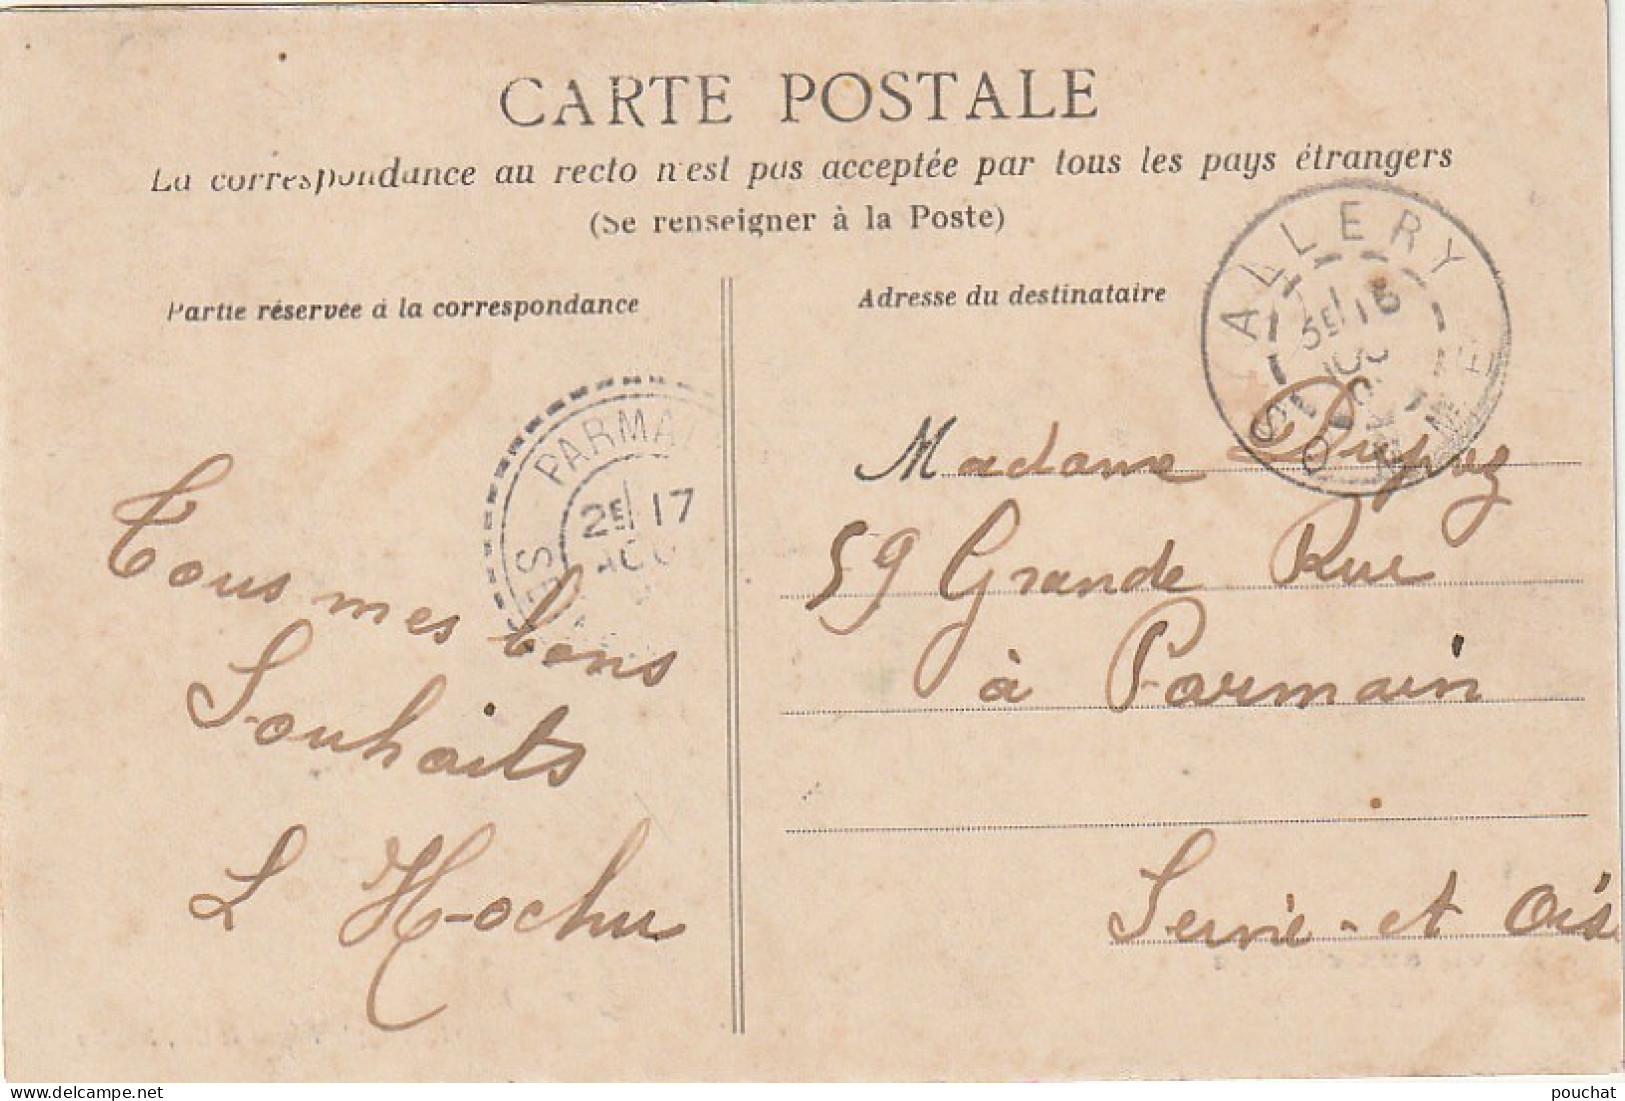 CARTE POSTALE
La correspondance au recto n'est pas acceptée par tous les pays étrangers
(Se renseigner à la Poste)
Partie réservée à la correspondance
Adresse du destinataire
ALLERY
SOMME
PARMA
2E 17
AOU
Tous mes bons
Souhaits
L Hochu
Madame
59 Grande Rue
à Parmain
Seine-et Oise
pouchat